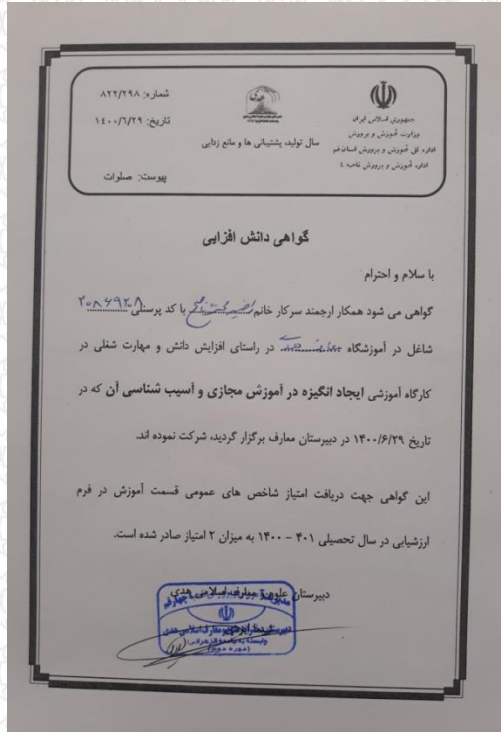 جمهوری اسلامی ایران
وزارت آموزش و پرورش
اداره کل آموزش و پرورش استان قم
اداره آموزش و پرورش ناحیه ٤
هدی
سال تولید، پشتیبانی ها و مانع زدایی
شماره: ۸۲۲/۲۹۸
تاریخ: ۱٤۰۰/٦/۲۹
پیوست: صلوات
گواهی دانش افزایی
با سلام و احترام
گواهی می شود همکار ارجمند سرکار خانم با کد پرسنلی ۲۰۸۶۹۲۰۸
شاغل در آموزشگاه در راستای افزایش دانش و مهارت شغلی در
کارگاه آموزشی ایجاد انگیزه در آموزش مجازی و آسیب شناسی آن که در
تاریخ ۱۴۰۰/۶/۲۹ در دبیرستان معارف برگزار گردید، شرکت نموده اند.
این گواهی جهت دریافت امتیاز شاخص های عمومی قسمت آموزش در فرم
ارزشیابی در سال تحصیلی ۴۰۱ - ۱۴۰۰ به میزان ۲ امتیاز صادر شده است.
دبیرستان علوم و معارف اسلامی هدی